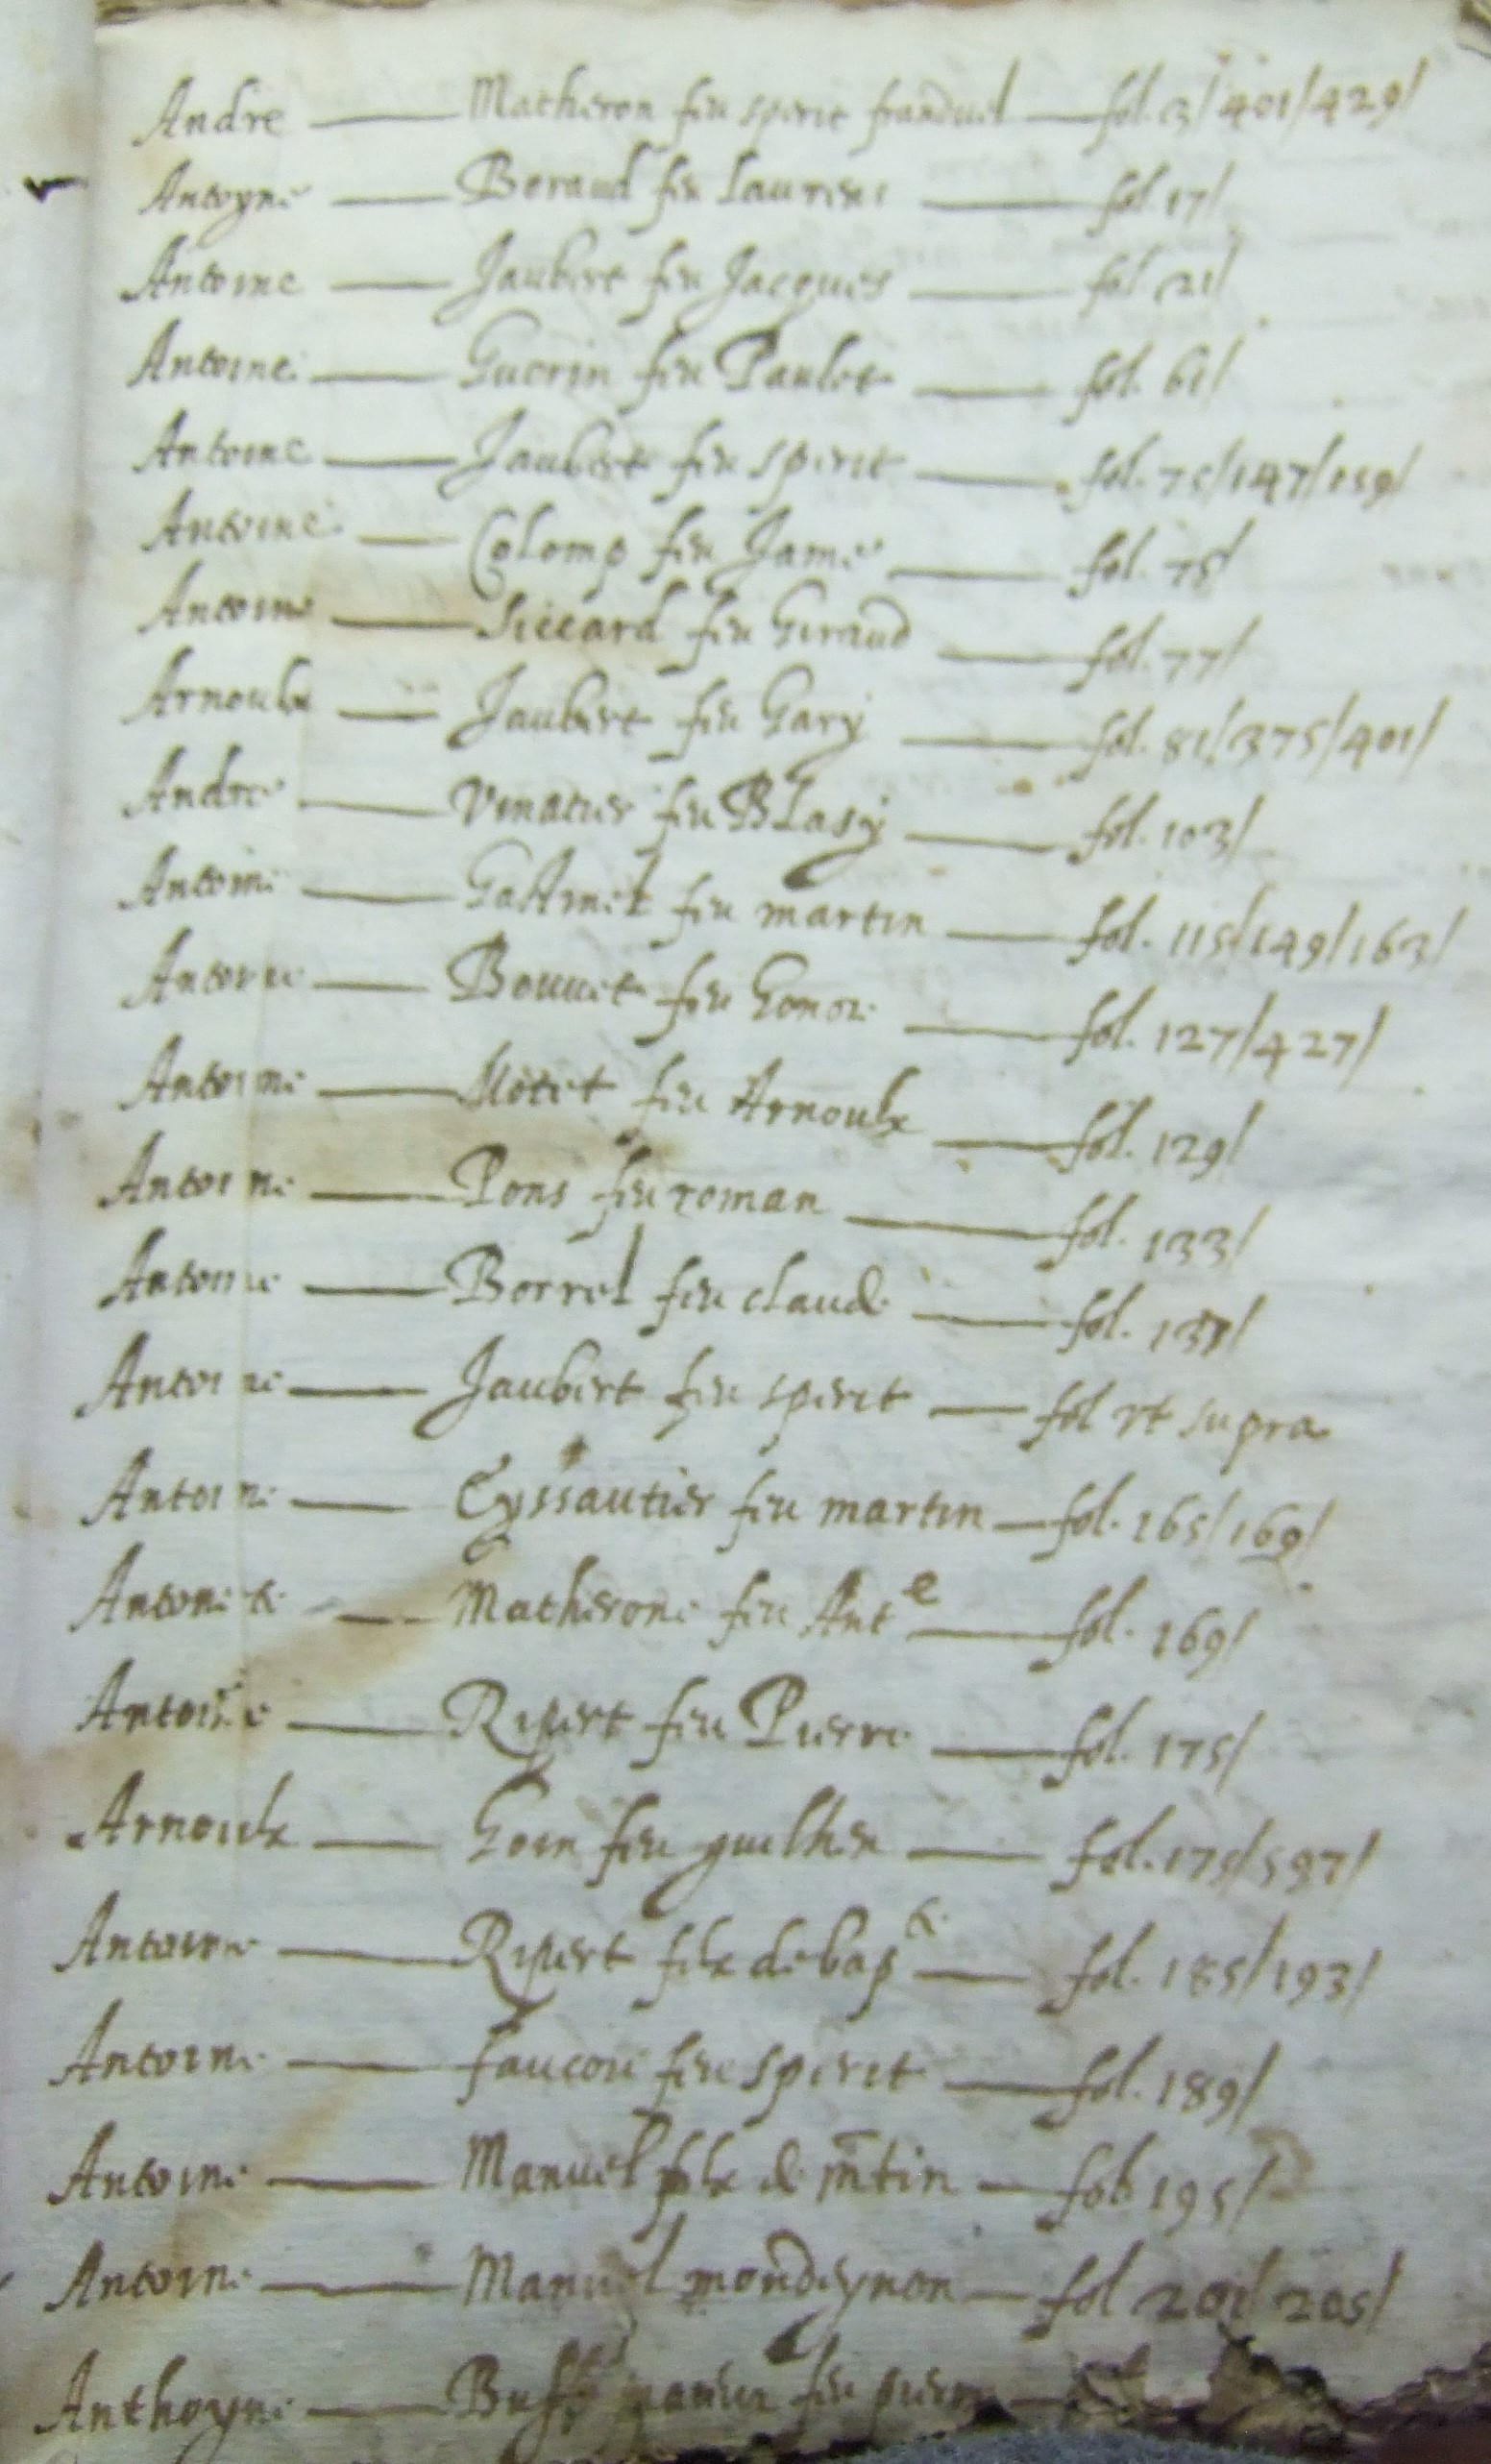 Andre — Matheron feu sperit franduel — fol. 3/401/429/
Antoyne — Beraud feu Laurens — fol. 17/
Antoine — Jaubert feu Jacques — fol. 21/
Antoine — Guerin feu Paulet — fol. 61/
Antoine — Jaubert feu sperit — fol. 75/147/159/
Antoine — Colomp feu Jame — fol. 75/
Antoine — Siccard feu Giraud — fol. 77/
Arnoulx — Jaubert feu Gary — fol. 81/375/401/
Andre — Vinatier feu Blasy — fol. 103/
Antoine — feu martin — fol. 115/149/163/
Antoine — Bouuet feu honore — fol. 127/427/
Antoine — Motet feu Arnoulx — fol. 129/
Antoine — Pons feu roman — fol. 133/
Antoine — Borrel feu claude — fol.
Antoine — Jaubert feu sperit — fol vt supra
Antoine — Eyssautier feu martin — fol. 165/169/
Antonete — Matherone feu Ant e — fol. 169/
Antoine — Ripert feu Pierre — fol. 175/
Arnoulx — feu guilhen — fol. 175/597/
Antoine — Ripert filx de bap te — fol. 185/193/
Antoine — faucon feu sperit — fol. 189/
Antoine — Manuel filx de mtin — fol. 195/
Antoine — Manuel mondeynon — fol 201/205/
Anthoyne — feu pierre —